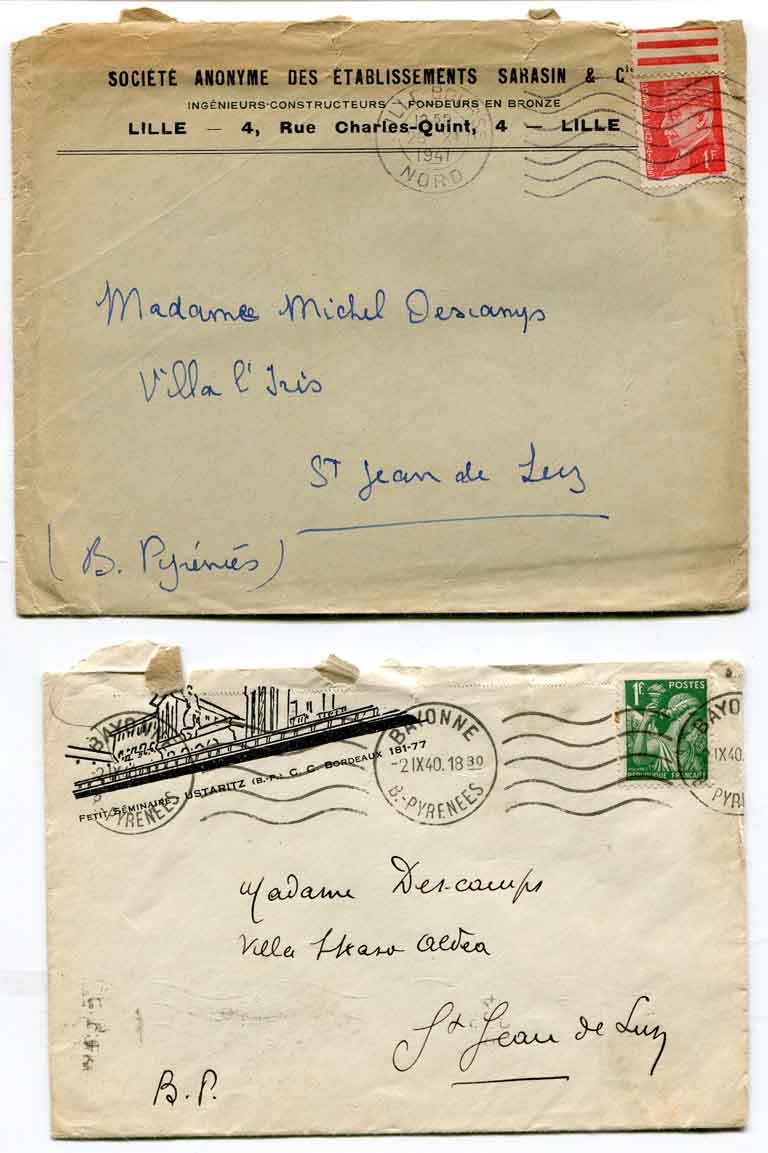 SOCIÉTÉ ANONYME DES ÉTABLISSEMENTS SARASIN & Cie
INGÉNIEURS-CONSTRUCTEURS — FONDEURS EN BRONZE
LILLE — 4, Rue Charles-Quint, 4 — LILLE
1941
NORD
1F
Madame Michel Descamps
Villa l'Iris
St Jean de Luz
(B. Pyrénées)
PETIT SÉMINAIRE USTARITZ (B.-P.) C. C. BORDEAUX 181-77
BAYONNE
PYRENEES
BAYONNE
-2 IX 40. 18 30
B.-PYRENEES
1F POSTES
RÉPUBLIQUE FRANÇAISE
BAYO
IX40.
PYR
Madame Descamps
Villa Itxaso Aldea
St Jean de Luz
B. P.